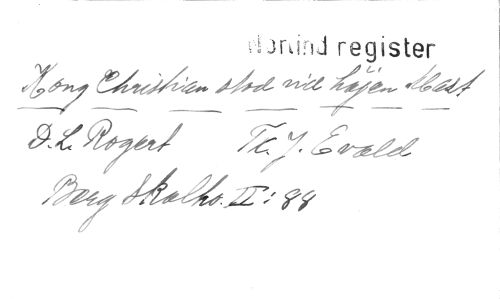 Norlind register
Kong Christian stod vid høyen Mast
D.L. Rogert T.: J. Evald
Berg Skolho. II: 88